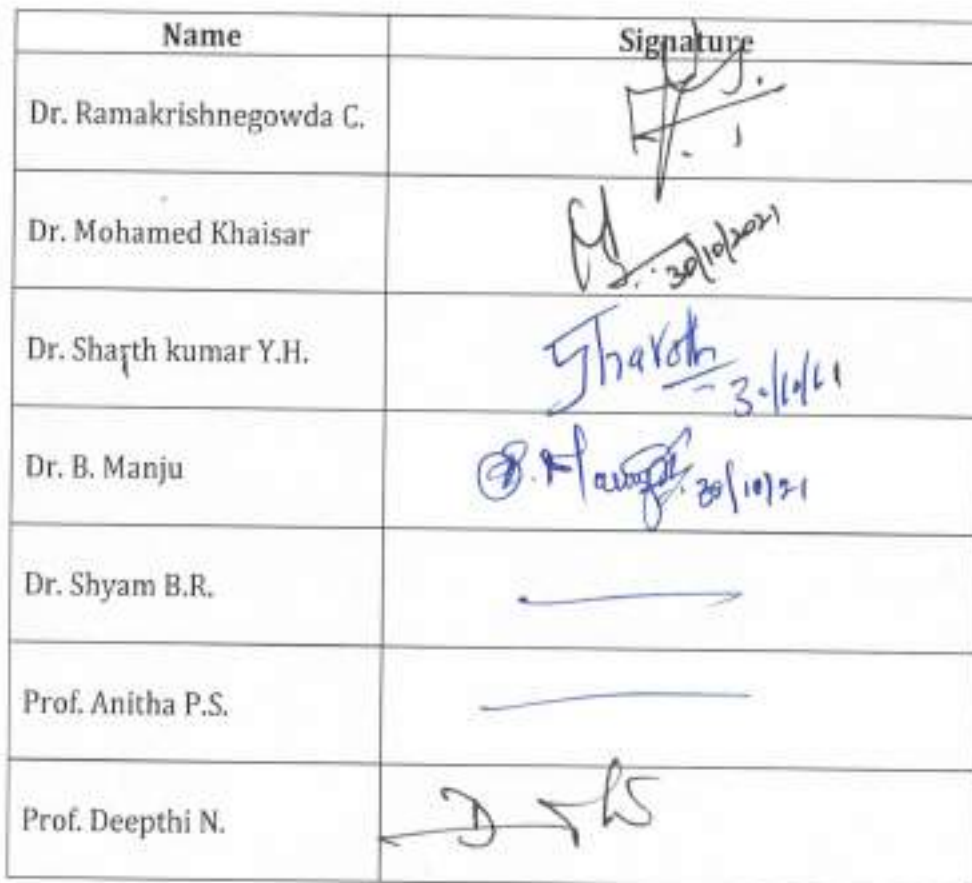 Name Signature
Dr. Ramakrishnegowda C.
Dr. Mohamed Khaisar 30/10/2021
Dr. Sharth kumar Y.H. Sharath
Dr. B. Manju B. Manju 30/10/21
Dr. Shyam B.R.
Prof. Anitha P.S.
Prof. Deepthi N.